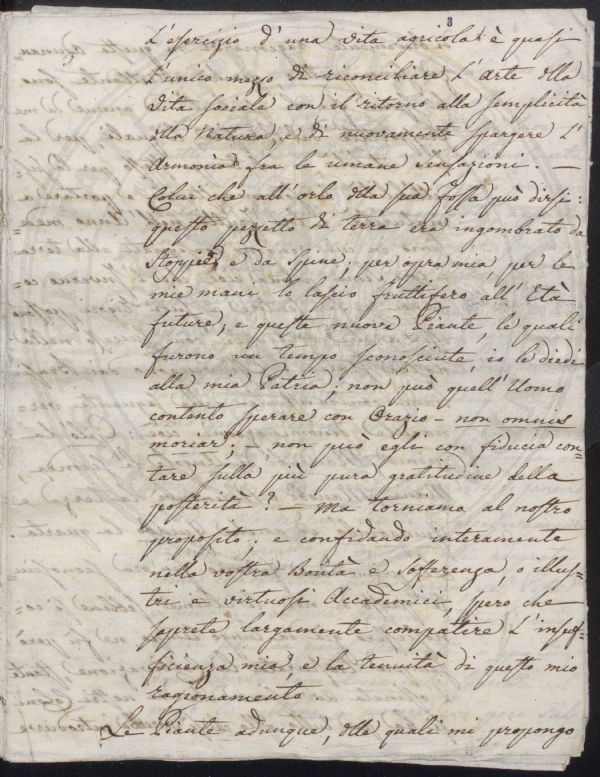 8
L'esercizio d'una vita agricola è quasi
l'unico mezzo di riconciliare l'arte dlla
vita sociale con il ritorno alla semplicità
dlla Natura, e di nuovamente spargere l'
Armonia fra le umane sensazioni. —
Colui che all'orlo dlla sua fossa può dirsi:
questo pezzetto di terra era ingombrato da
Stoppie, e da Spine; per opra mia, per le
mie mani lo lascio fruttifero all'Età
future, e queste nuove Piante, le quali
furono un tempo sconosciute, io le diedi
alla mia Patria; non può quell'Uomo
contento sperare con Orazio - non omnis
moriar; non può egli con fiducia con=
tare sulla più pura gratitudine della
posterità? — Ma torniamo al nostro
proposito; e confidando interamente
nella vostra Bontà e Sofferenza, o illus=
tri e virtuosi Accademici, spero che
saprete largamente compatire l'insuf=
ficienza mia, e la tenuità di questo mio
ragionamento.
Le Piante adunque, dlle quali mi propongo